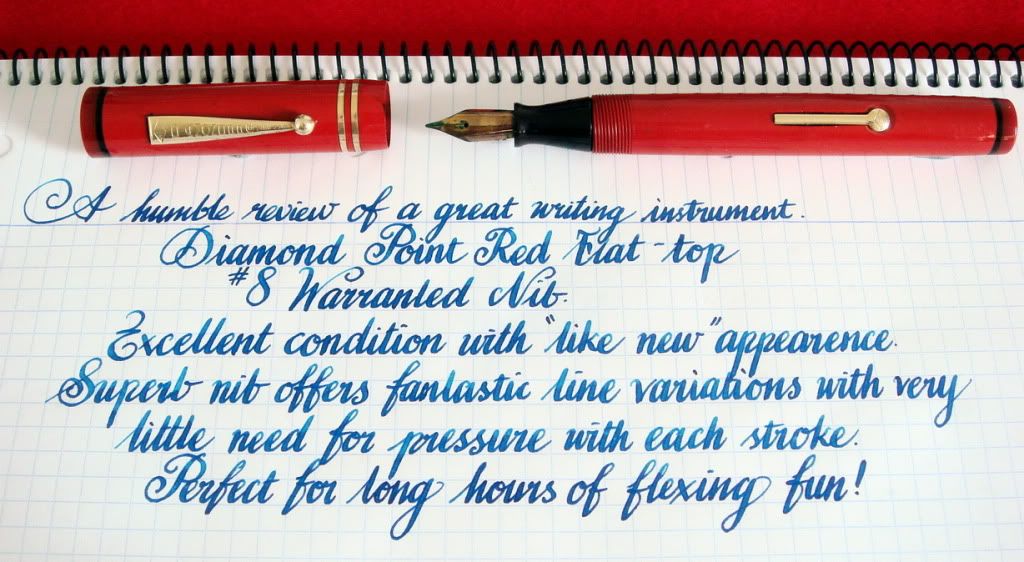 A humble review of a great writing instrument.
Diamond Point Red Flat-top
#8 Warranted Nib.
Excellent condition with "like new" appearence.
Superb nib offers fantastic line variations with very
little need for pressure with each stroke.
Perfect for long hours of flexing fun!